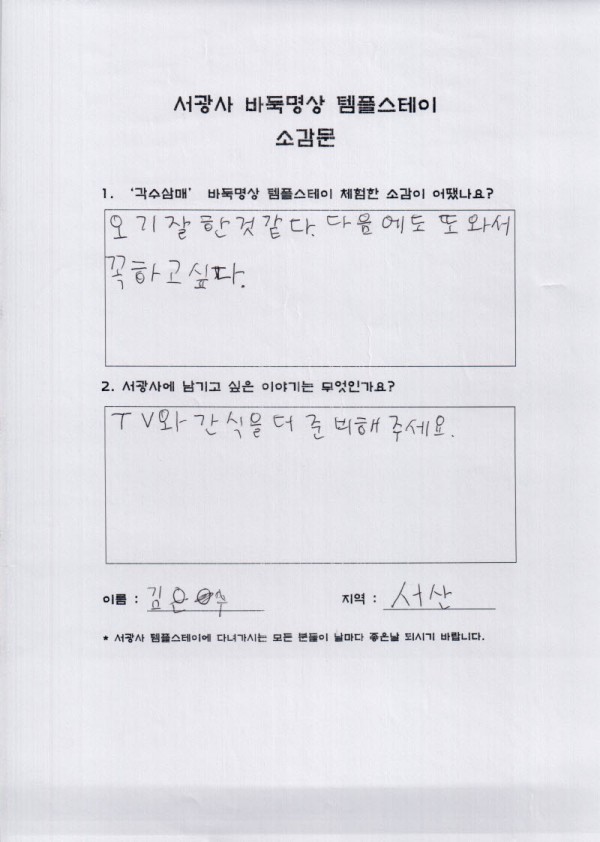 서광사 바둑명상 템플스테이
소감문
1. '각수삼매' 바둑명상 템플스테이 체험한 소감이 어땠나요?
오기잘한것같다. 다음에도 또 와서
꼭하고싶다.
2. 서광사에 남기고 싶은 이야기는 무엇인가요?
TV와 간식을 더 준비해주세요.
이름 : 김은수 지역 : 서산
* 서광사 템플스테이에 다녀가시는 모든 분들이 날마다 좋은날 되시기 바랍니다.